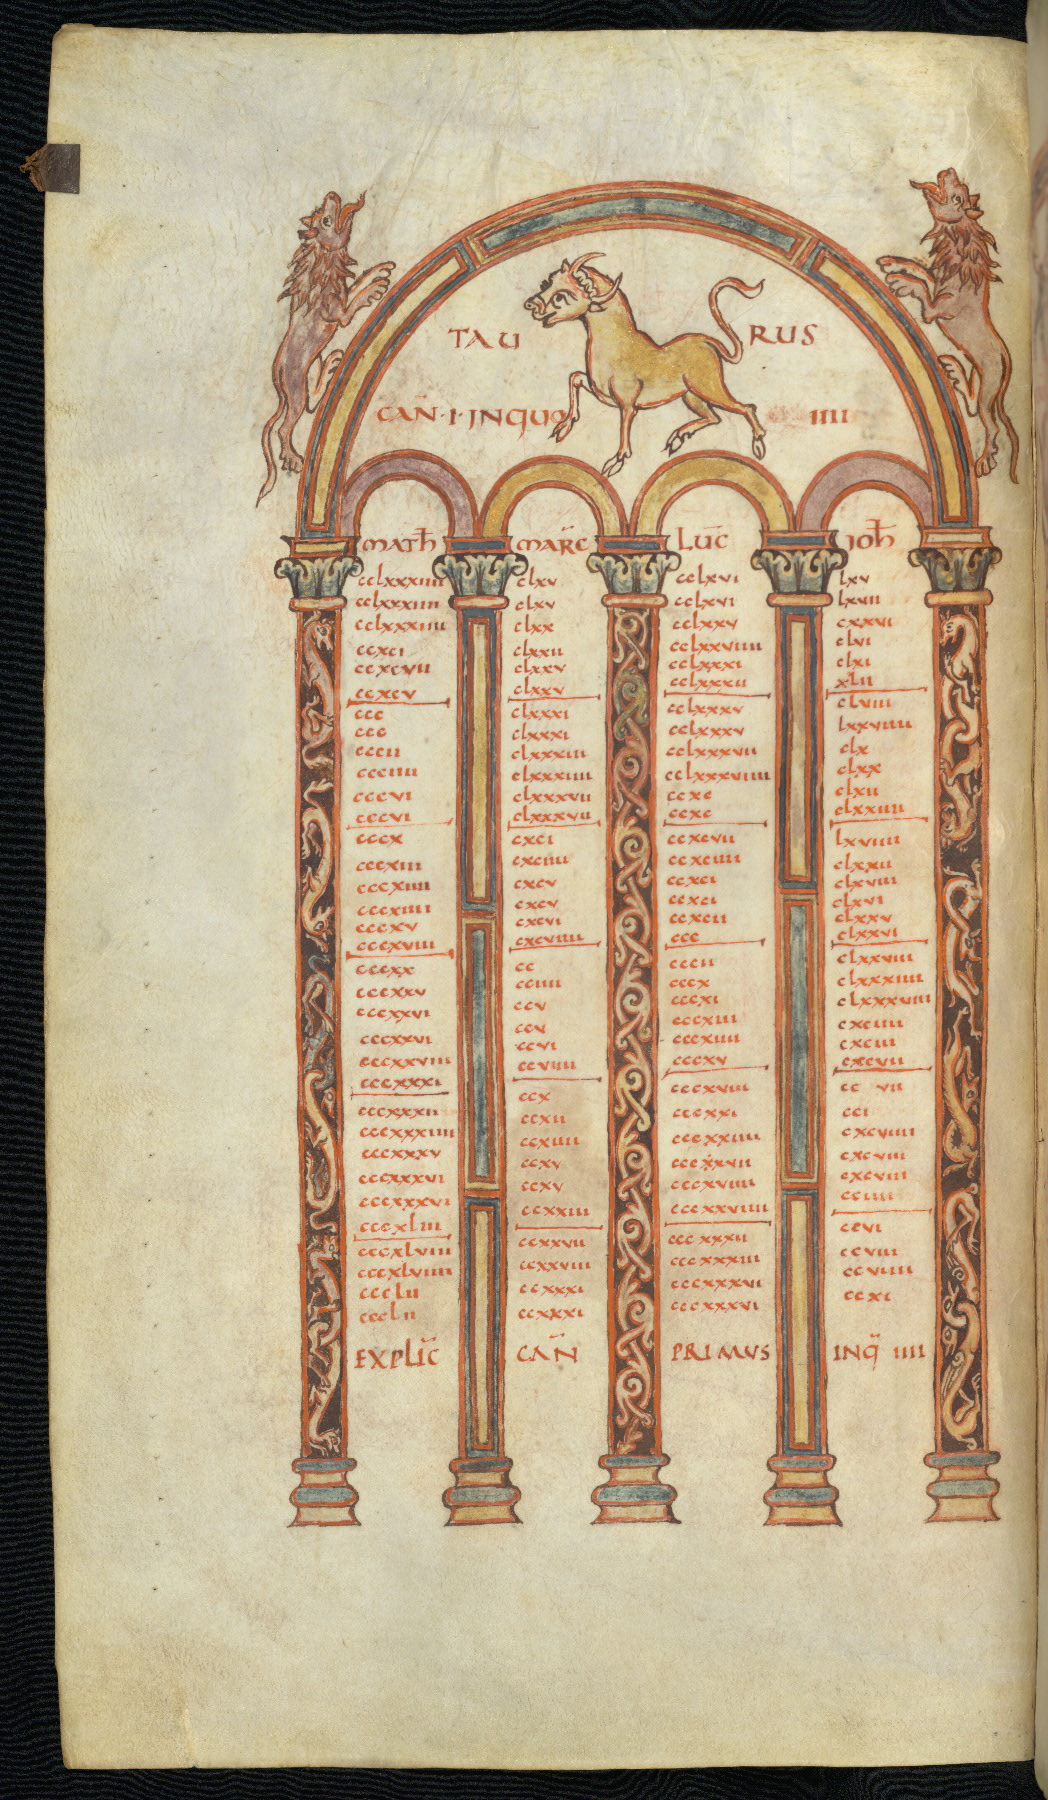 TAU RUS
CAN̄·I·INQUO IIII
MATH̄ MARC̄ LUC̄ IOH̄
cclxxxiiii clxv cclxvi lxv
cclxxxiiii clxv cclxvi lxvii
cclxxxiiii clxx cclxxv cxxvi
ccxci clxxii cclxxviiii clvi
ccxcvii clxxv cclxxxi clxi
ccxcv clxxv cclxxxii xlii
ccc clxxxi cclxxxv clviii
ccc clxxxi cclxxxv lxxviiii
cccii clxxxiii cclxxxvii clx
ccciiii clxxxiiii cclxxxviiii clxx
cccvi clxxxvii ccxc clxii
cccvi clxxxvii ccxc clxxiiii
cccx cxci ccxcvii lxviiii
cccxiii cxciiii ccxciiii clxxii
cccxiiii cxcv ccxci clxviii
cccxiiii cxcv ccxci clxvi
cccxv cxcvi ccxcii clxxv
cccxviii cxcviiii ccc clxxvi
cccxx cc cccii clxxviii
cccxxv cciiii cccx clxxxiiii
cccxxvi ccv cccxi clxxxviii
cccxxvi ccv cccxiii cxciiii
cccxxviii ccvi cccxiiii cxciii
cccxxxi ccviiii cccxv cxcvii
cccxxxii ccx cccxviii cc vii
cccxxxiiii ccxii cccxxi cci
cccxxxv ccxiiii cccxxiiii cxcviiii
cccxxxvi ccxv cccxxvii cxcviii
cccxxxvi ccxv cccxviiii cxcviii
cccxliii ccxxiii cccxxviiii cciiii
cccxlviii ccxxvii cccxxxii ccvi
cccxlviiii ccxxviii cccxxxiii ccviii
ccclii ccxxxi cccxxxvi ccviiii
ccclii ccxxxi cccxxxvi ccxi
EXPLIC̄ CAN̄ PRIMUS INQ̄ IIII